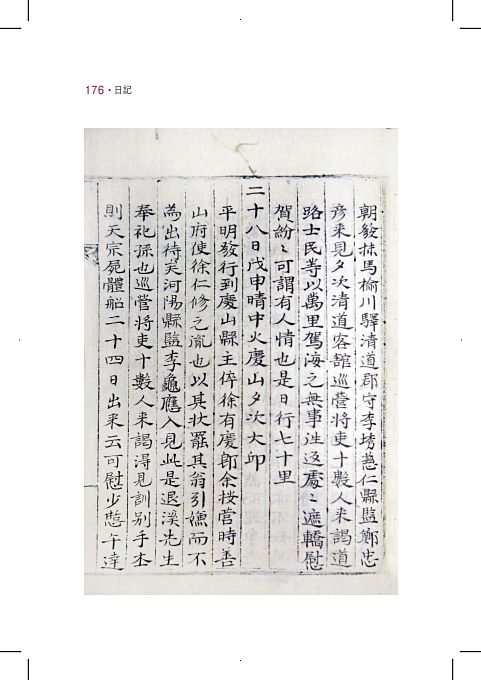 176 · 日記
朝發抹馬楡川驛清道郡守李琇慈仁縣監鄭忠
彦來見夕次清道客舘巡營將吏十數人来謁道
路士民等以萬里駕海之無事徃返處〻遮轎慰
賀紛〻可謂有人情也是日行七十里
二十八日戊申晴中火慶山夕次大邱
平明發行到慶山縣主倅徐有慶卽余按營時善
山府使徐仁修之胤也以其状羆其翁引嫌而不
爲出待矣河陽縣監李龜應入見此是退溪先生
奉祀孫也巡營將吏十數人来謁得見訓别手本
則天宗屍體船二十四日出来云可慰少憇午達